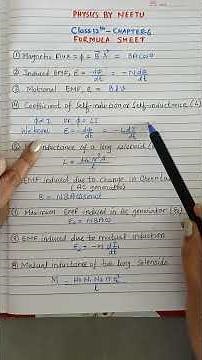 PHYSICS BY NEETU
Class 12th - CHAPTER-6
FORMULA SHEET
① Magnetic flux = ϕ = B⃗.A⃗ = BAcosθ
② Induced EMF, E = -dϕ/dt = -N dϕ/dt
③ Motional EMF, E = Blv
④ Coefficient of Self-induction or Self-inductance (L)
ϕ ∝ I or ϕ = LI
E = -dϕ/dt = -L dI/dt
inductance of a long solenoid
L =
EMF induced due to change in
(AC generator)
E = NBAω sinωt
⑦ Maximum EMF induced in AC generator (E₀)
E₀ = NBAω
⑧ EMF induced due to mutual induction
E₂ = -M dI₁/dt
⑨ Mutual inductance of two long Solenoids
M = μ₀ N₁ N₂ π r₁² / l